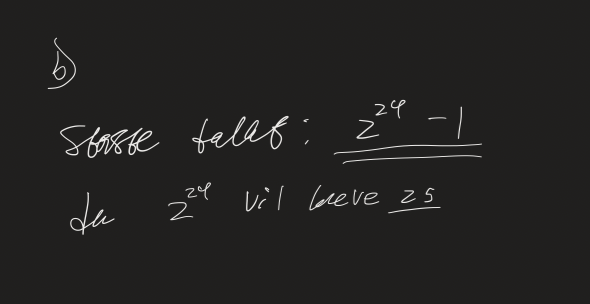 b)
Største tallet: 2^24 - 1
da 2^24 vil kreve 25